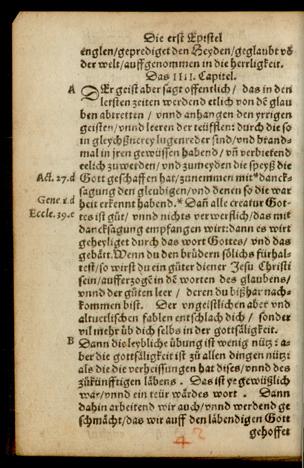 Die erst Epistel
englen/geprediget den Heyden/geglaubt vō
der welt/auffgenommen in die herrligkeit.
Das IIII. Capitel.
A DEr geist aber sagt offentlich / das in den
letsten zeiten werdend etlich von dē glau
ben abtretten / vnnd anhangen den yrrigen
geisten/vnnd leeren der teüfflen: durch die so
in gleychßnerey lugenreder sind/vnd brand-
mal in jren gewüssen habend/ vñ verbietend
eelich zuwerden/vnd zumeyden die speyß die
Act. 27.d Gott geschaffen hat/zunemmen mit*danck-
sagung den gleubigen/vnd denen so die war
Gene 1.d heit erkennt habend.* Dañ alle creatur Got-
Eccle. 39.c tes ist gůt/ vnnd nichts verwerflich/das mit
dancksagung empfangen wirt: dann es wirt
geheyliget durch das wort Gottes/ vnd das
gebätt. Wenn du den brüdern sölichs fürhal-
test/so wirst du ein gůter diener Jesu Christi
sein/aufferzogē in dē worten des glaubens/
vnnd der gůten leer / deren du bißhar nach-
kommen bist. Der vngeistlichen aber vnd
altuetlischen fablen entschlach dich / sonder
vil mehr üb dich selbs in der gottsäligkeit.
B Dann die leybliche übung ist wenig nütz: a-
ber die gottsäligkeit ist zů allen dingen nütz:
als die die verheissungen hat dises/vnnd des
zůkünfftigen läbens. Das ist ye gewüßlich
war/vnnd ein teür wärdes wort. Dann
dahin arbeitend wir auch/vnnd werdend ge
schmächt/das wir auff den läbendigen Gott
gehoffet